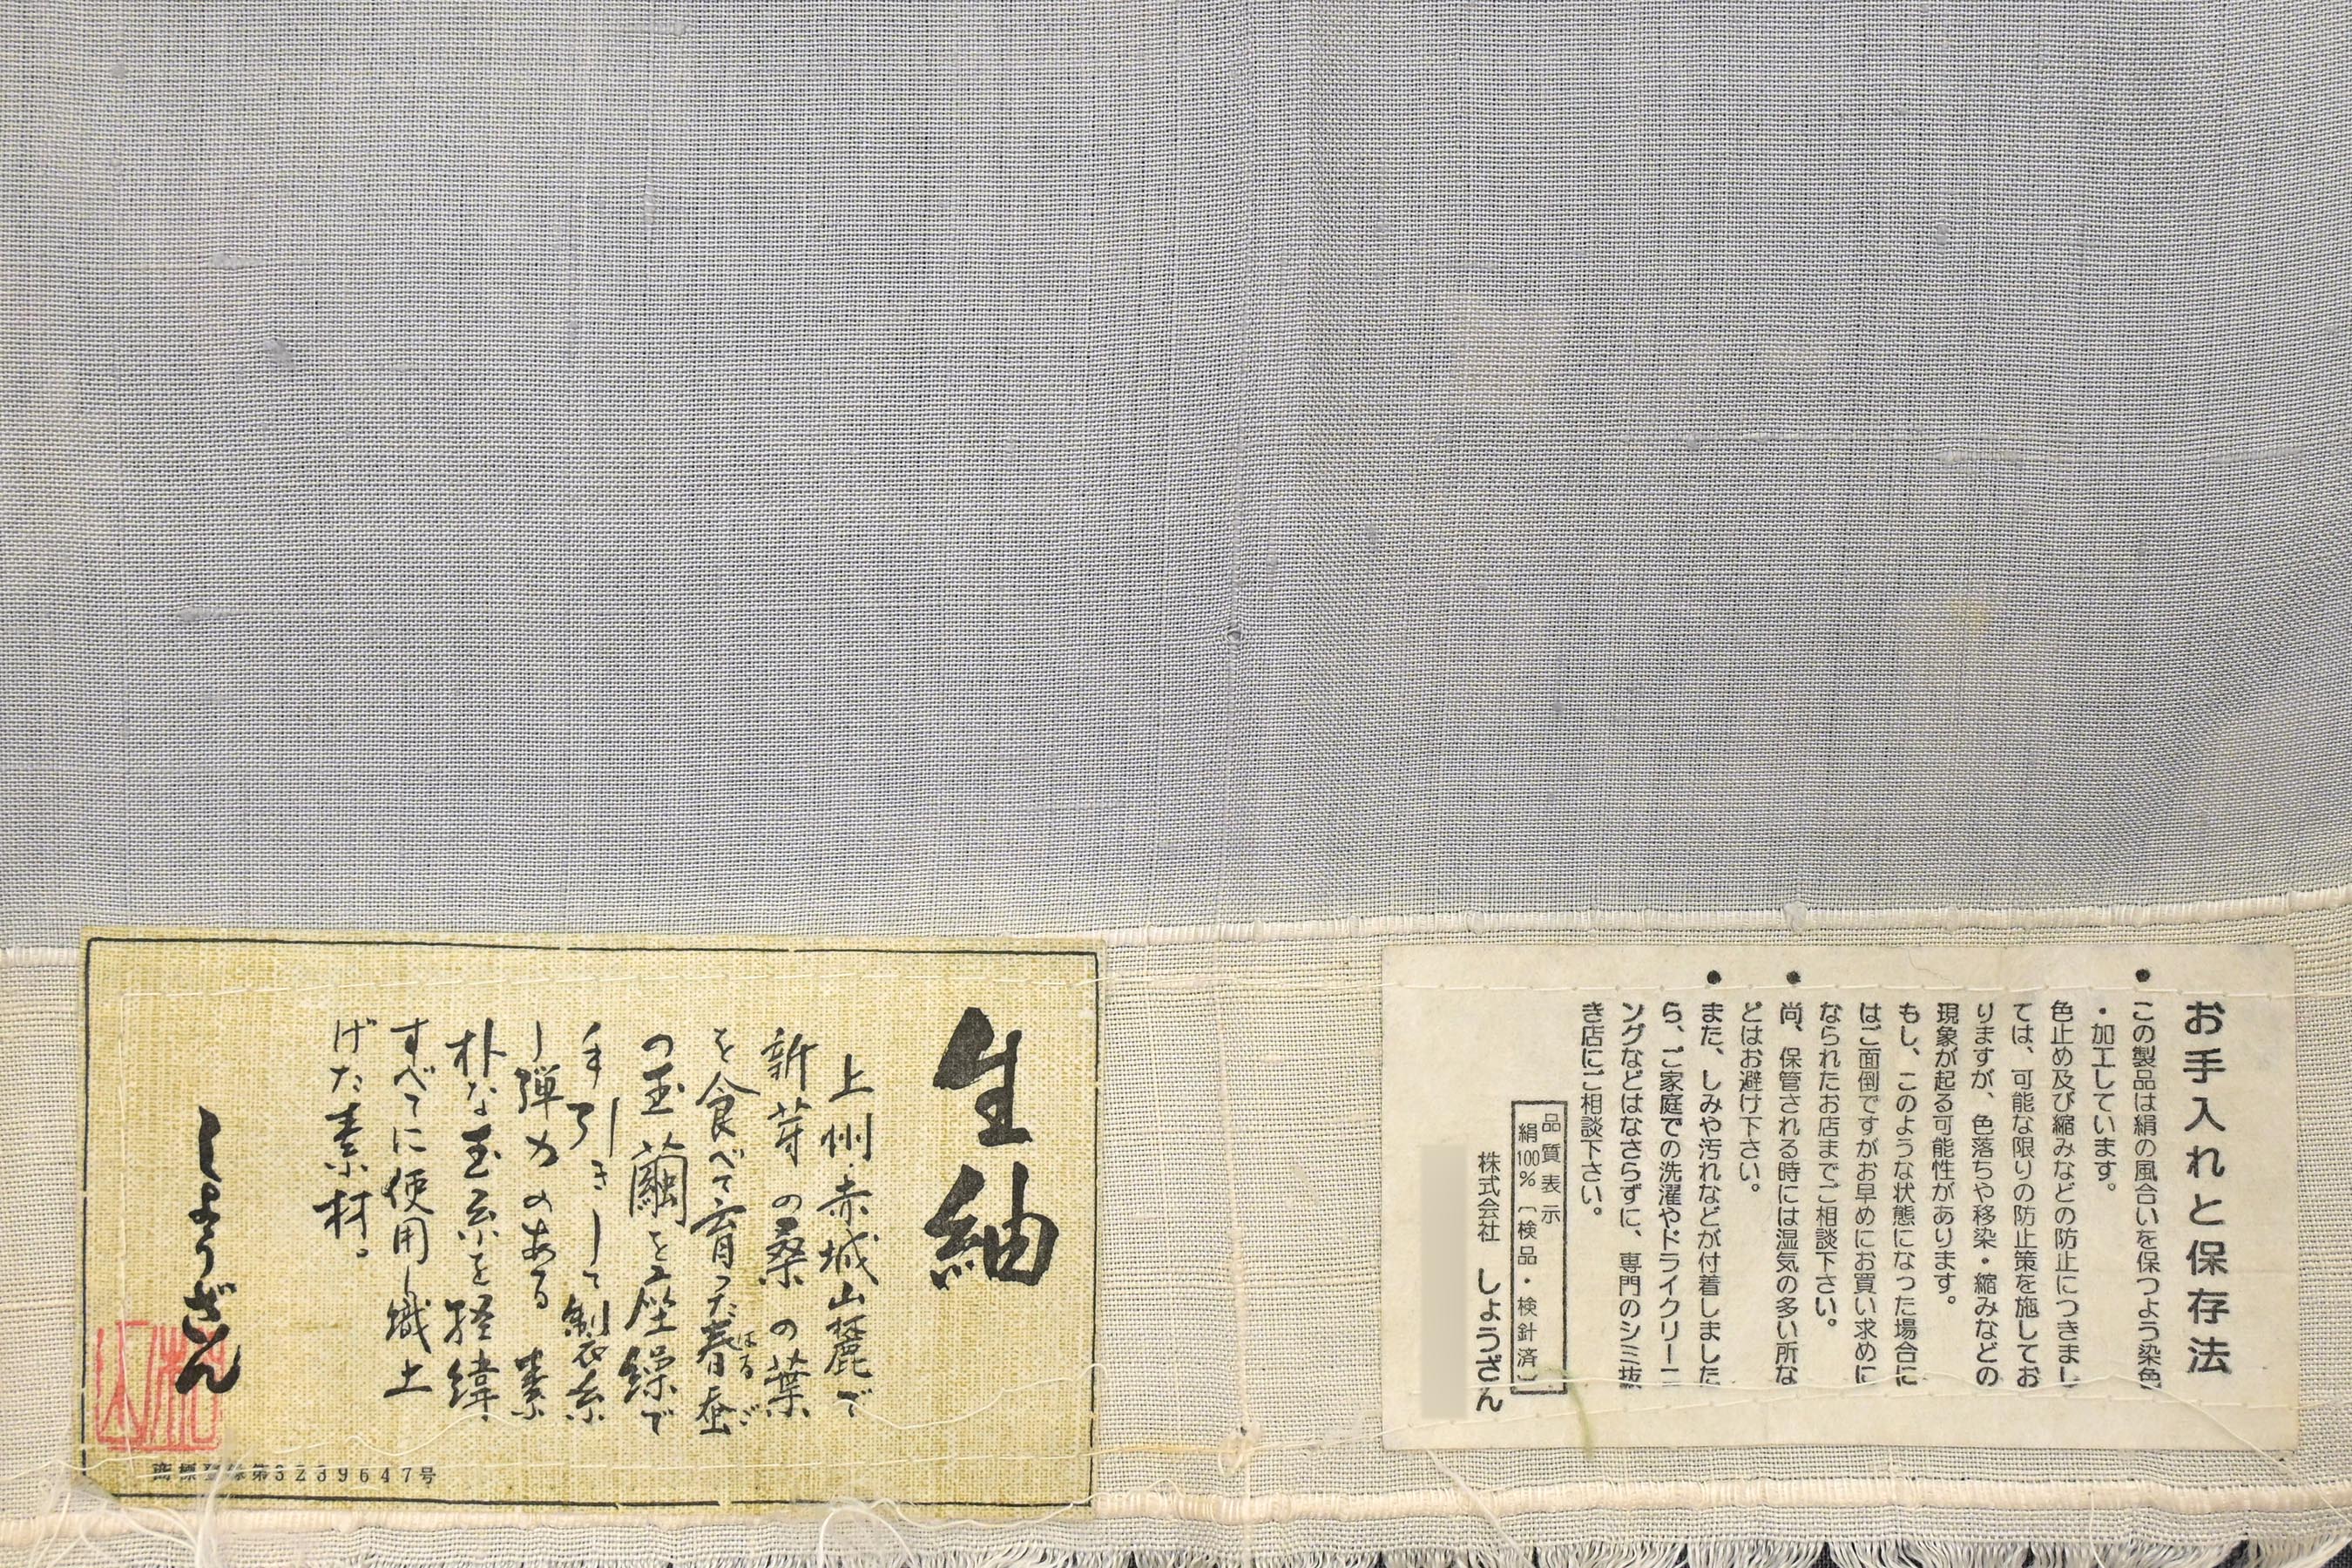 お手入れと保存法
●この製品は絹の風合いを保つよう染色
・加工しています。
色止め及び縮みなどの防止につきまし
ては、可能な限りの防止策を施してお
りますが、色落ちや移染・縮みなどの
現象が起る可能性があります。
もし、このような状態になった場合に
はご面倒ですがお早めにお買い求めに
なられたお店までご相談下さい。
●尚、保管される時には湿気の多い所な
どはお避け下さい。
●また、しみや汚れなどが付着しました
ら、ご家庭での洗濯やドライクリーニ
ングなどはなさらずに、専門のシミ抜
き店にご相談下さい。
品質表示
絹100%〔検品・検針済〕
株式会社 しょうざん
生紬
上州・赤城山麓で
新芽の桑の葉
を食べて育った春蚕
はるご
の玉繭を座繰で
手引きして製糸
し弾力のある素
朴な玉糸を経緯
すべてに使用し織上
げた素材。
しょうざん
商標登録第3239647号